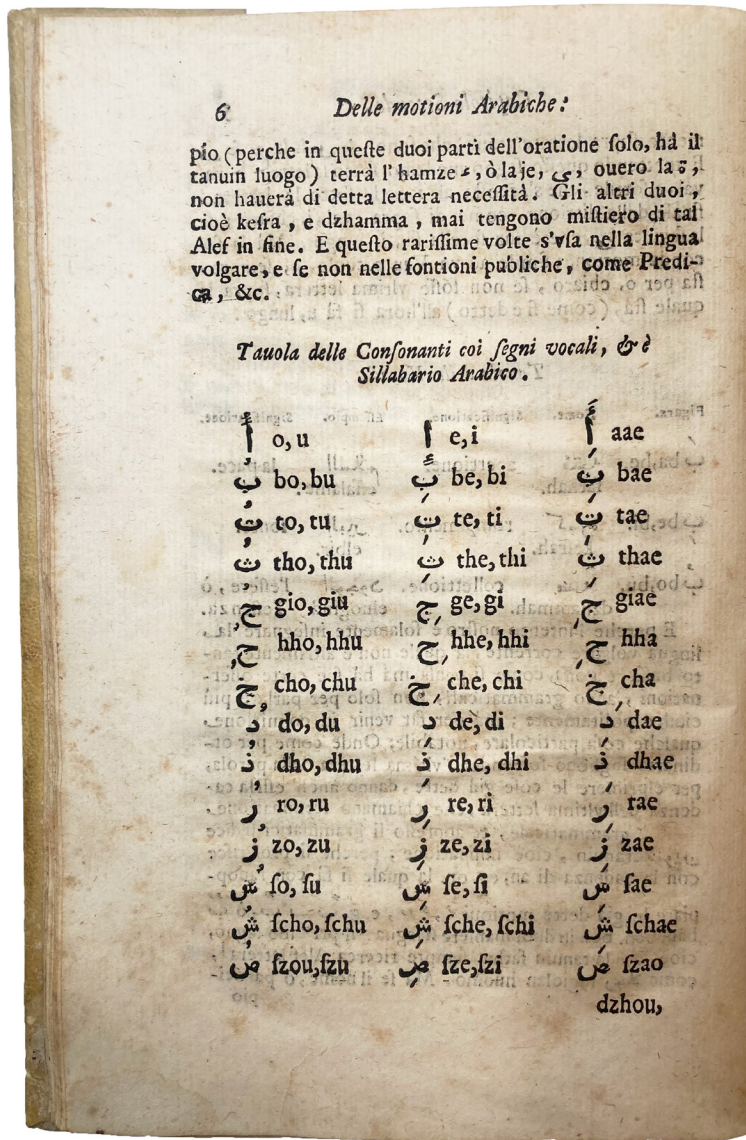 6 Delle motioni Arabiche:
pio (perche in queſte duoi parti dell'oratione ſolo, há il
tanuin luogo) terrà l'hamze ء, ò la je, ى, ouero la ة,
non hauerà di detta lettera neceſſità. Gli altri duoi,
cioè keſra, e dzhamma, mai tengono miſtiero di tal
Alef in fine. E queſto rariſſime volte s'vſa nella lingua
volgare, e ſe non nelle fontioni publiche, come Predi-
ca, &c.
Tauola delle Conſonanti coi ſegni vocali, & è
Sillabario Arabico.
أُ o, u إِ e, i أَ aae
بُ bo, bu بِ be, bi بَ bae
تُ to, tu تِ te, ti تَ tae
ثُ tho, thu ثِ the, thi ثَ thae
جُ gio, giu جِ ge, gi جَ giae
حُ hho, hhu حِ hhe, hhi حَ hha
خُ cho, chu خِ che, chi خَ cha
دُ do, du دِ de, di دَ dae
ذُ dho, dhu ذِ dhe, dhi ذَ dhae
رُ ro, ru رِ re, ri رَ rae
زُ zo, zu زِ ze, zi زَ zae
سُ ſo, ſu سِ ſe, ſi سَ ſae
شُ ſcho, ſchu شِ ſche, ſchi شَ ſchae
صُ ſzou, ſzu صِ ſze, ſzi صَ ſzao
dzhou,